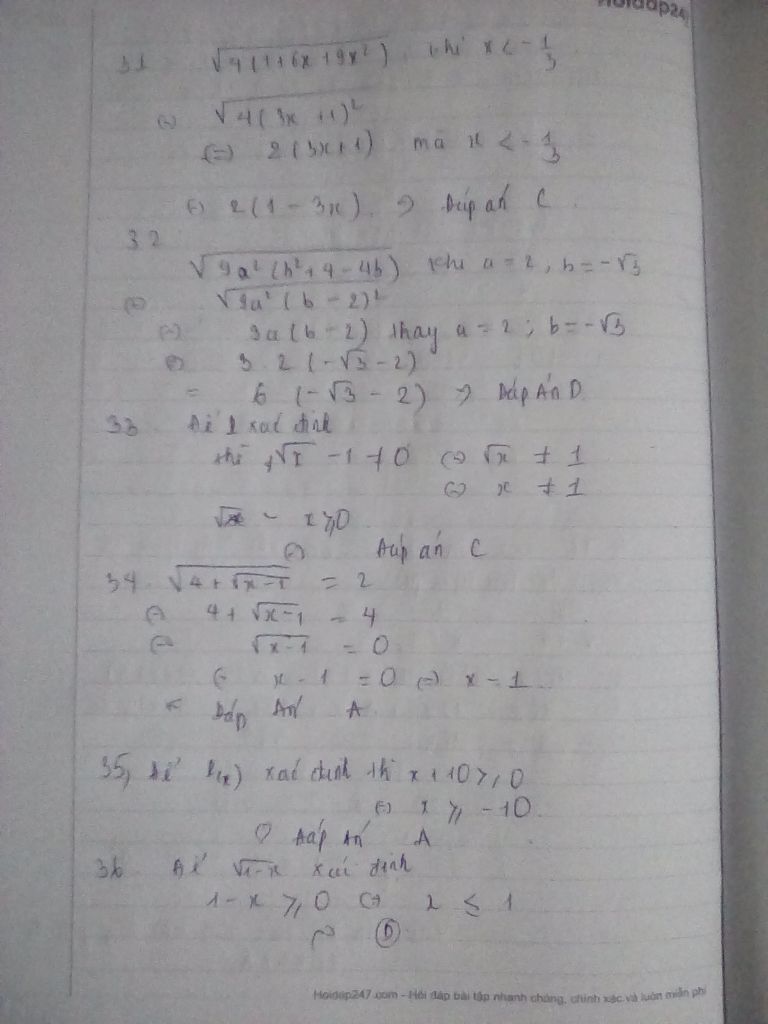 Hoidap247
31 √4(1+6x+9x²) khi x < -1/3
(=) √4(3x+1)²
(=) 2(3x+1) mà x < -1/3
(=) 2(1-3x) => Đáp án C
32
√9a²(b²+4-4b) khi a=2, b=-√3
(=) √9a²(b-2)²
(=) 3a(b-2) thay a=2; b=-√3
(=) 3.2(-√3-2)
= 6(-√3-2) => Đáp Án D
33 Để xác định
thì √x -1 ≠ 0 (=) √x ≠ 1
(=) x ≠ 1
- x ⩾ 0
(=) Đáp án C
34. √4+√x-1 = 2
(=) 4+√x-1 = 4
(=) √x-1 = 0
(=) x-1 = 0 (=) x = 1
Đáp Án A
35, Để (x) xác định thì x+10 ⩾ 0
(=) x ⩾ -10
Đáp Án A
36 Để √1-x xác định
1-x ⩾ 0 (=) 2 ≤ 1
=> D
Hoidap247.com - Hỏi đáp bài tập nhanh chóng, chính xác và luôn miễn phí